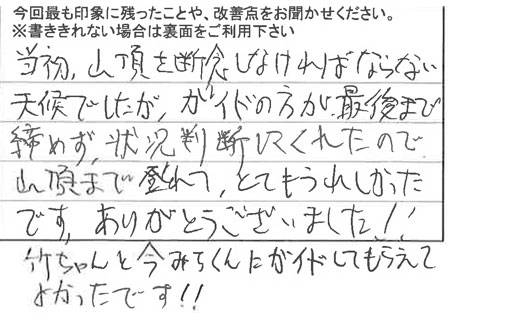 今回最も印象に残ったことや、改善点をお聞かせください。
※書ききれない場合は裏面をご利用下さい
当初、山頂を断念しなければならない
天候でしたが、ガイドの方が最後まで
締めず、状況判断してくれたので
山頂まで登れて、とてもうれしかった
です。ありがとうございました!!
竹ちゃんと今みちくんにガイドしてもらえて
よかったです!!